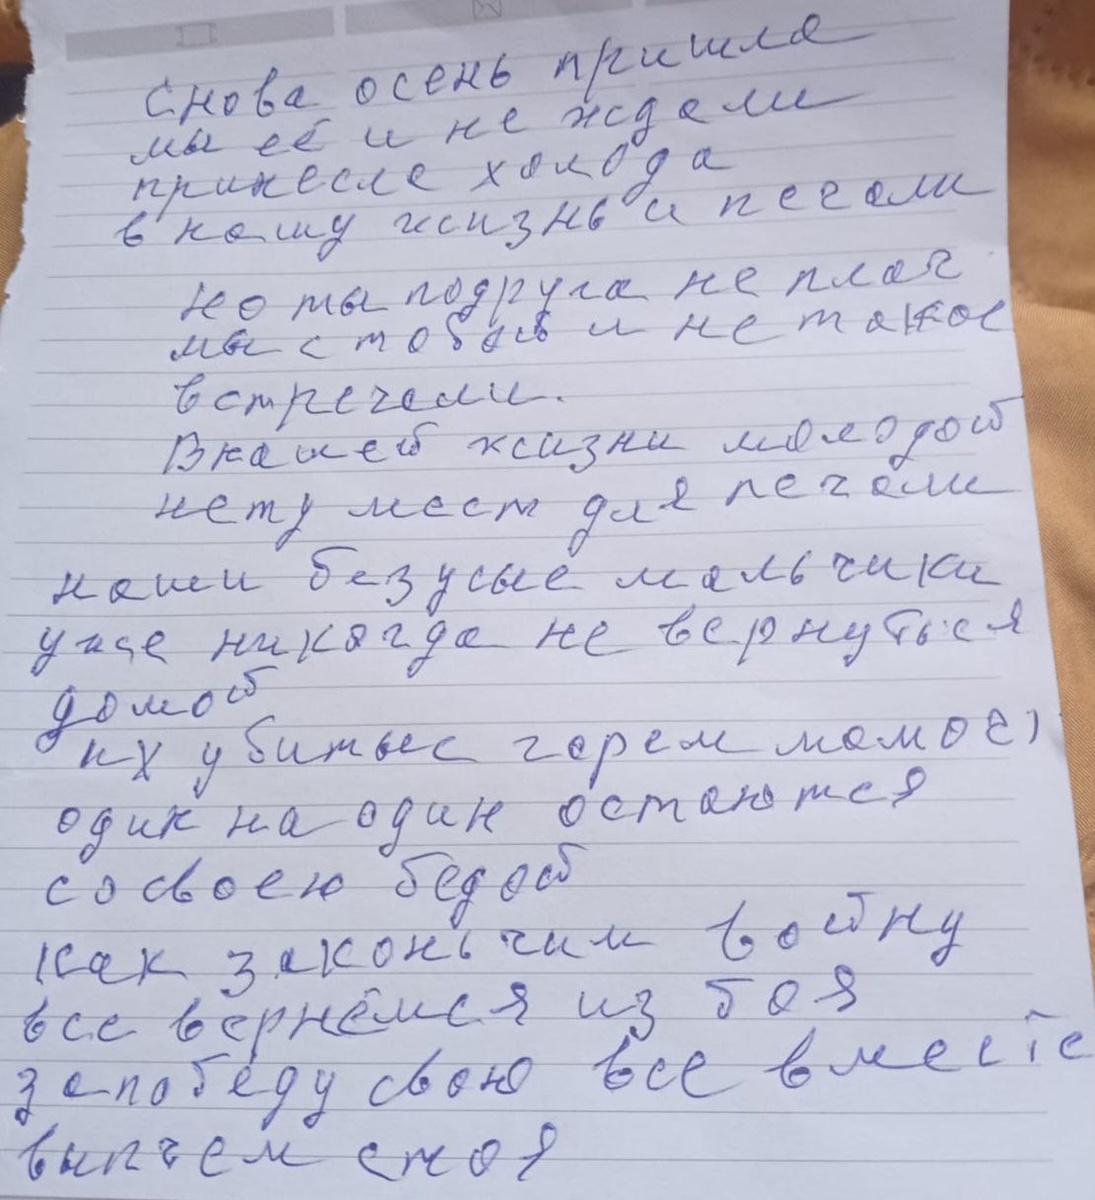 Снова осень пришла
мы её и не ждали
принесла холода
в нашу жизнь и печали
но ты подруга не плач
мы с тобой и не такое
встречали.
В нашей жизни молодой
нету мест для печали
наши безусые мальчики
уже никогда не вернуться
домой
их убитые горем мамое)
один на один остаются
со своею бедой
как законьчим войну
все вернёмся из боя
за победу свою все вместе
выпьем стоя